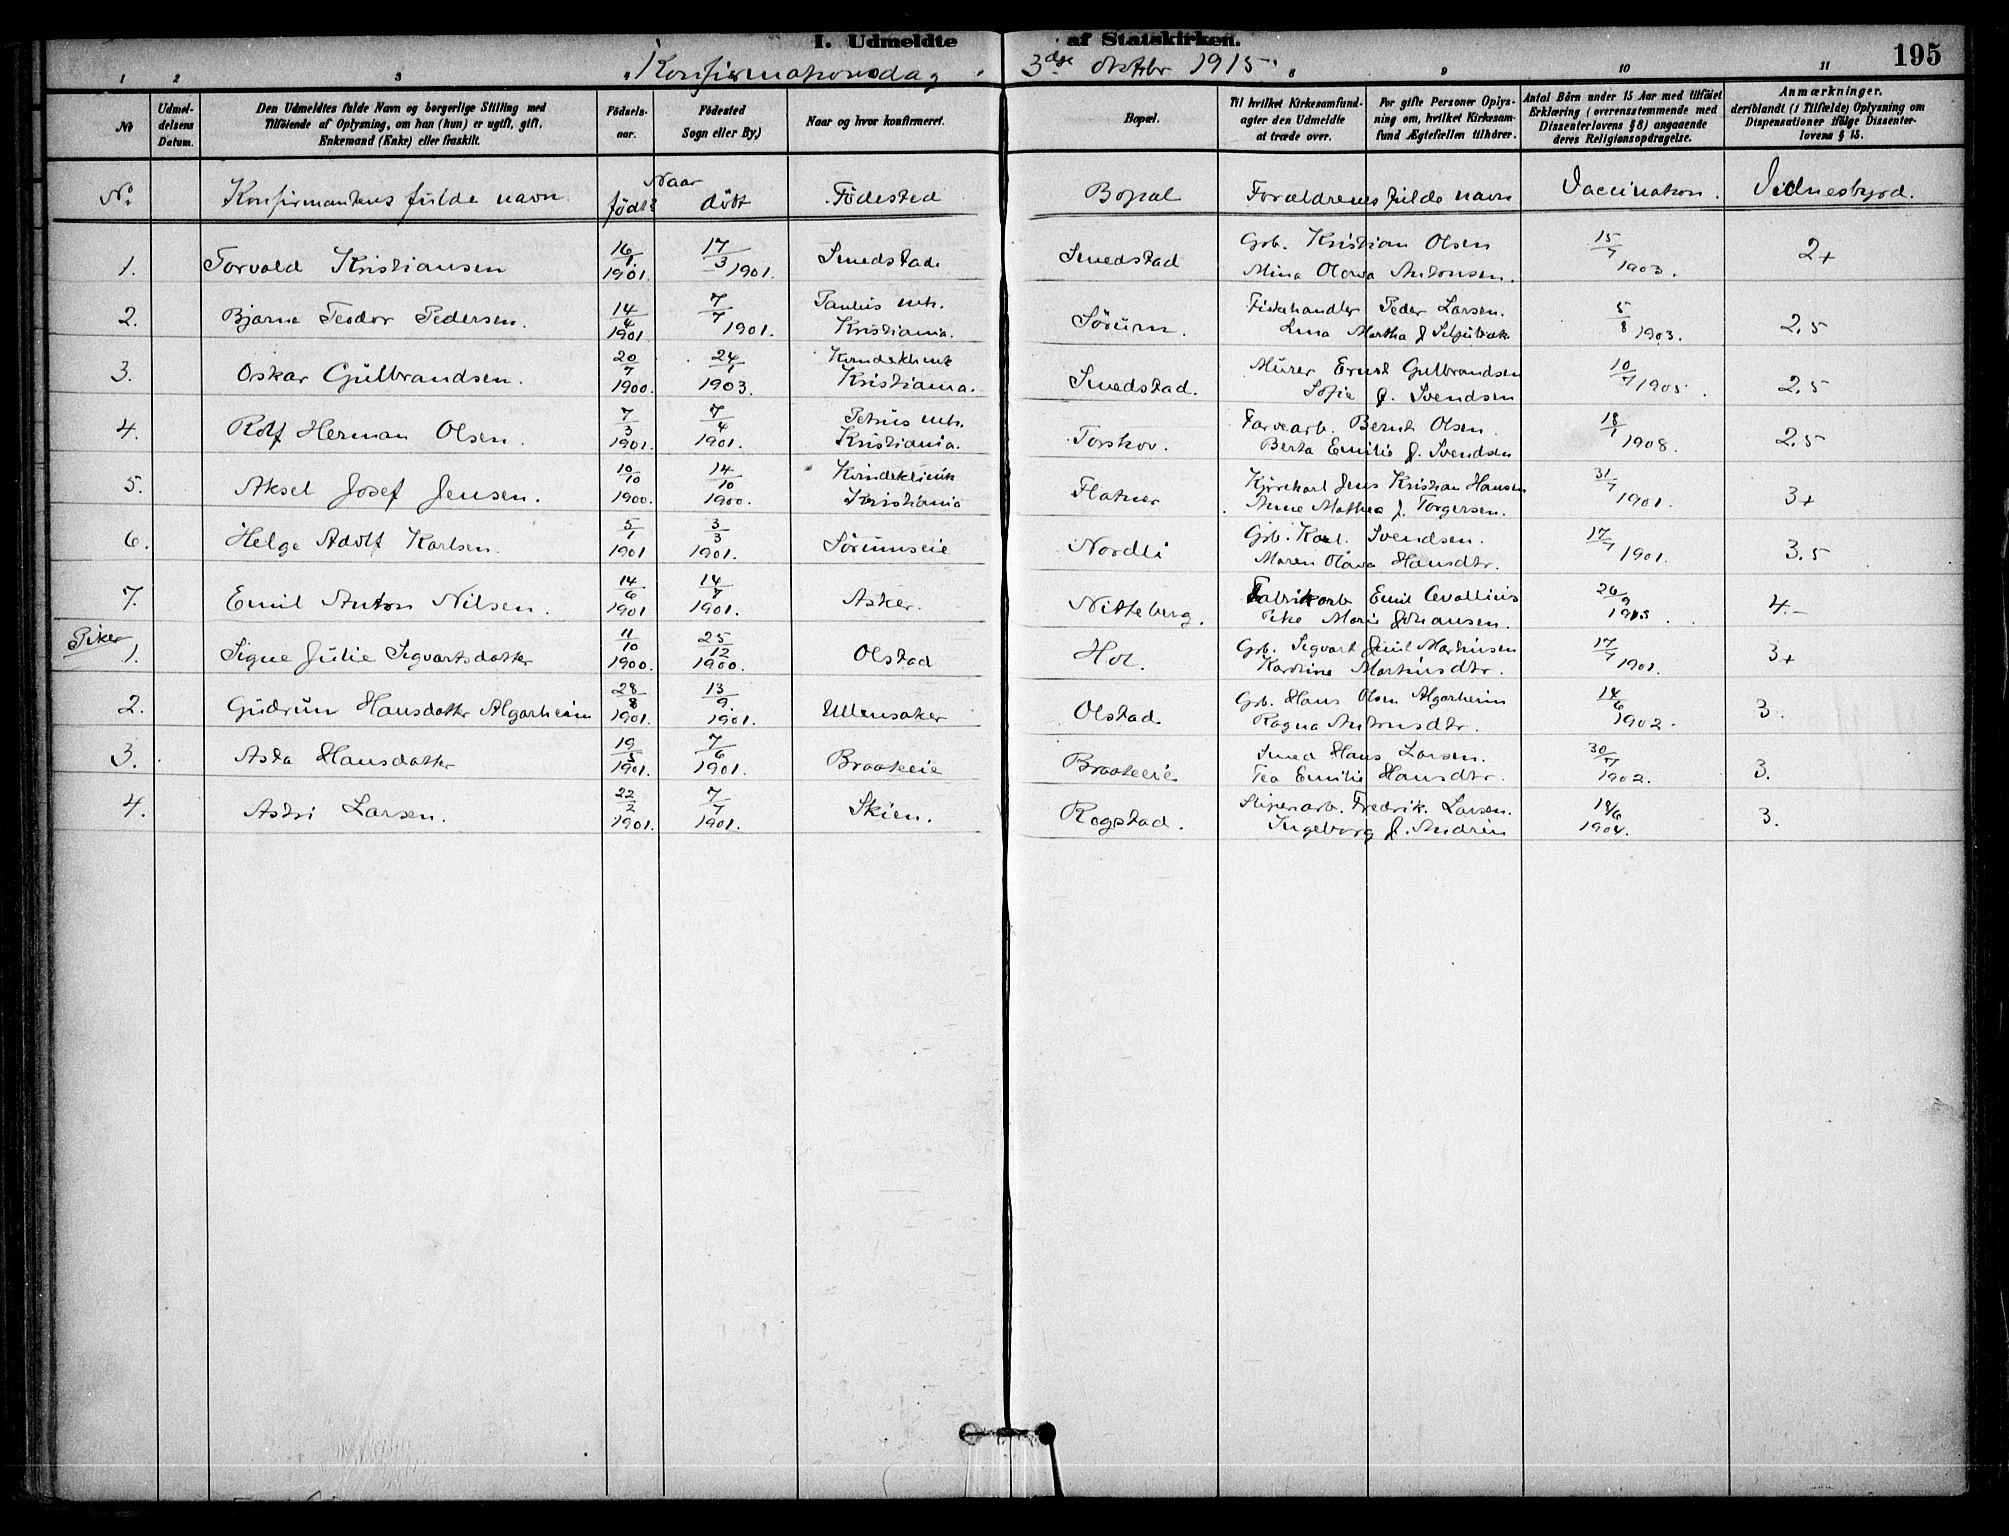 I. Udmeldte af Statskirken.
195
Konfirmationsdag 3dje oktbr 1915.
1 2 3 8 9 10 11
No
Udmel-
delsens
Datum.
Den Udmeldtes fulde Navn og borgerlige Stilling med
Tilføiende af Oplysning, om han (hun) er ugift, gift,
Enkemand (Enke) eller fraskilt.
Fødsels-
aar.
Fødested
Sogn eller By)
Naar og hvor konfirmeret.
Bopæl.
Til hvilket Kirkesamfund-
agter den Udmeldte
at træde over.
For gifte Personer Oplys-
ning om, hvilket Kirkesam-
fund Ægtefællen tilhører.
Antal Börn under 15 Aar med tilföiet
Erklæring (overensstemmende med
Dissenterlovens § 8) angaaende
deres Religionsopdragelse.
Anmærkninger,
deriblandt (i Tilfælde) Oplysning om
Dispensationer ifølge Dissenter-
lovens § 15.
No. Konfirmantens fulde navn. Naar født? døbt Födested Bopæl Forældrenes fulde navn Vaccination. Vidnesbyrd.
1. Torvald Kristiansen 16/1 1901. 17/3 1901. Smedstad. Smedstad Grb. Kristian Olsen 15/7 1903. 2+
Mina Olava Antonsen.
2. Bjarne Teodor Pedersen. 14/4 1901 7/7 1901. Paulus mh. Sörum. Fiskehandler Peder Larsen. 5/8 1903. 2,5
Kristiania. Martha f.
3. Oskar Gulbrandsen. 20/7 1900. 24/1 1903. Kvindeklinik Smedstad. Murer Ernst Gulbrandsen 10/7 1905. 2,5
Kristiania. Sofie f. Svendsen
4. Rolf Herman Olsen. 7/3 1901. 7/4 1901. Petrus mh. Torskov. Farvearb. Bernt Olsen. 18/1 1908. 2,5
Kristiania. Berta Emilie f. Svendsen
5. Aksel Josef Jensen. 10/10 1900. 14/10 1900. Kvindeklinik Flatner Jens Kristian Hansen 31/7 1901. 3+
Kristiania Anne Mathea f. Torgersen.
6. Helge Adolf Karlsen. 5/1 1901 3/3 1901. Sörumseie Nordli Grb. Karl Svendsen. 17/7 1901. 3,5
Maren Olava Hansdtr.
7. Emil Anton Nilsen. 14/6 1901 14/7 1901. Asker. Nitteberg. Fabrikarb Emil Cevallius 26/9 4.-
Marie Johansen.
Piker
1. Signe Julie Sigvartsdatter 11/10 1900. 25/12 1900. Olstad Hol. Grb. Sigvart Emil Martinsen 17/7 1901. 3+
Karoline Martinsdtr.
2. Gudrun Hansdatter Algarheim 28/8 1901. 13/9. 1901. Ullensaker Olstad. Grb. Hans Olsen Algarheim 14/6 1902. 3.
Ragna Antonsdtr.
3. Asta Hansdatter 19/5 1901. 7/6 1901. Braateeie Braateeie Smed Hans Larsen. 30/7 1902. 3.
Tea Emilie Hansdtr.
4. Astri Larsen. 22/2 1901. 7/7 1901. Skien. Rogstad. Sliperarb. Fredrik Larsen. 18/6 1904. 3.
Ingeborg f. Andrin